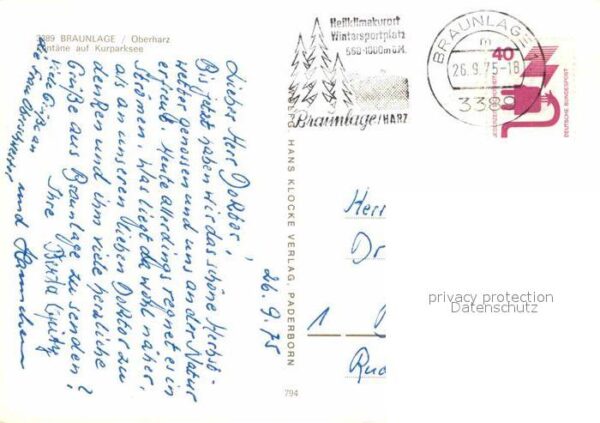 3389 BRAUNLAGE / Oberharz
Fontäne auf Kurparksee
Heilklimakurort
Wintersportplatz
560-1000m ü.M.
Braunlage/HARZ
BRAUNLAGE 1
m
26.9.75-18
3389
40
DEUTSCHE BUNDESPOST
26.9.75
Lieber Herr Doktor!
Bis jetzt haben wir das schöne Herbst-
wetter genossen und uns an der Natur
erfreut. Heute allerdings regnet es in
Strömen. Was liegt da wohl näher,
als an unseren lieben Doktor zu
denken und ihm viele herzliche
Grüße aus Braunlage zu senden?
Ihre
viele Grüße an
und
HANS KLOCKE VERLAG, PADERBORN
794
Herr
Dr
1
Rud
privacy protection
Datenschutz